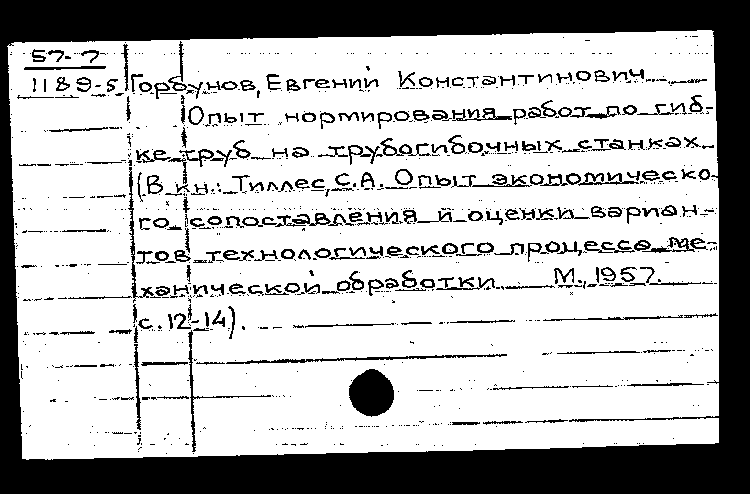 57-7
1189-5 Горбунов, Евгений Константинович
Опыт нормирования работ по гиб-
ке труб на трубогибочных станках
(В кн.: Тиллес, С.А. Опыт экономическо-
го сопоставления и оценки вариан-
тов технологического процесса ме-
ханической обработки М., 1957.
с. 12-14).